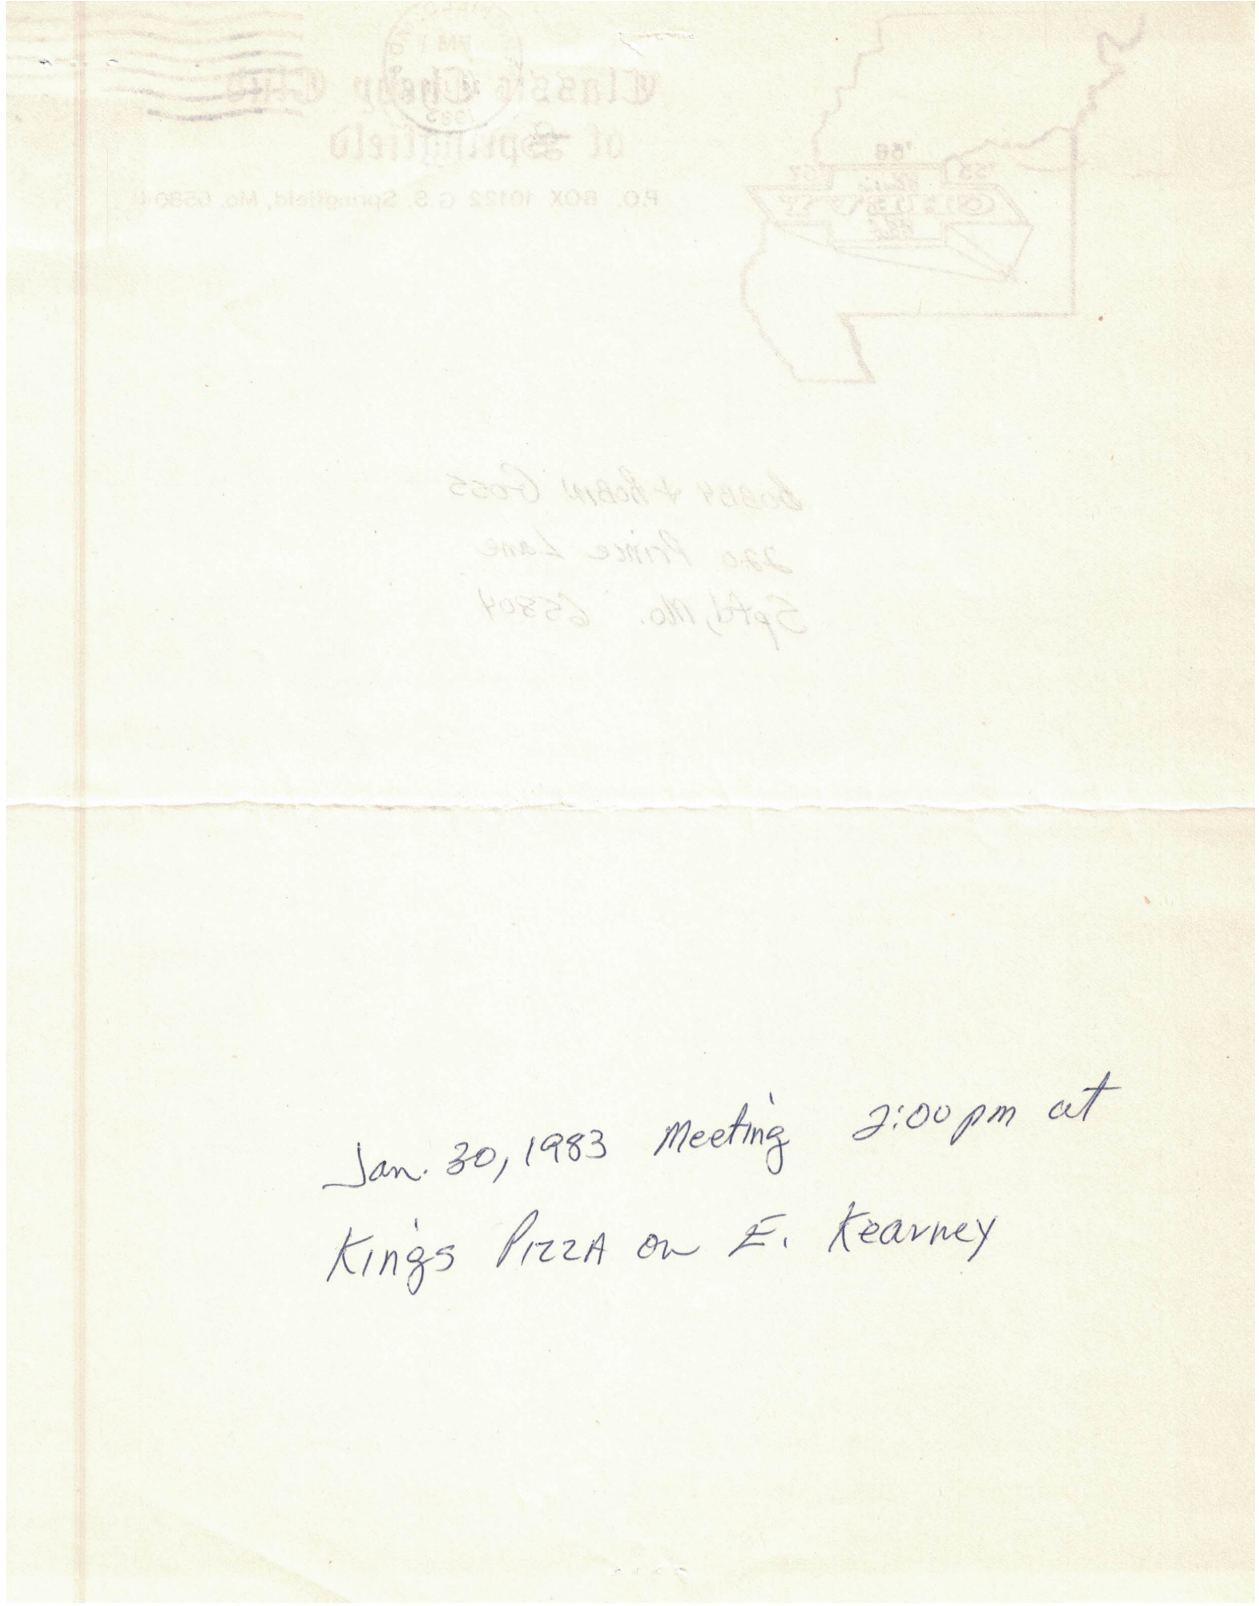 Classic Chevy Club
of Springfield
P.O. BOX 10122 G.S. Springfield, Mo. 65804
'56
'55
'57
Bobby & Robin Goss
220 Prince Lane
Spfd, Mo. 65804
Jan. 30, 1983 Meeting 2:00 pm at
King's PIZZA on E. Kearney